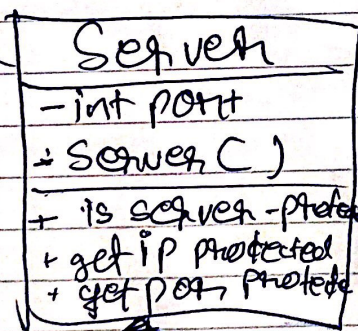 Server
- int port
+ Server ( )
+ is server - prote
+ get ip protected
+ get por protecte